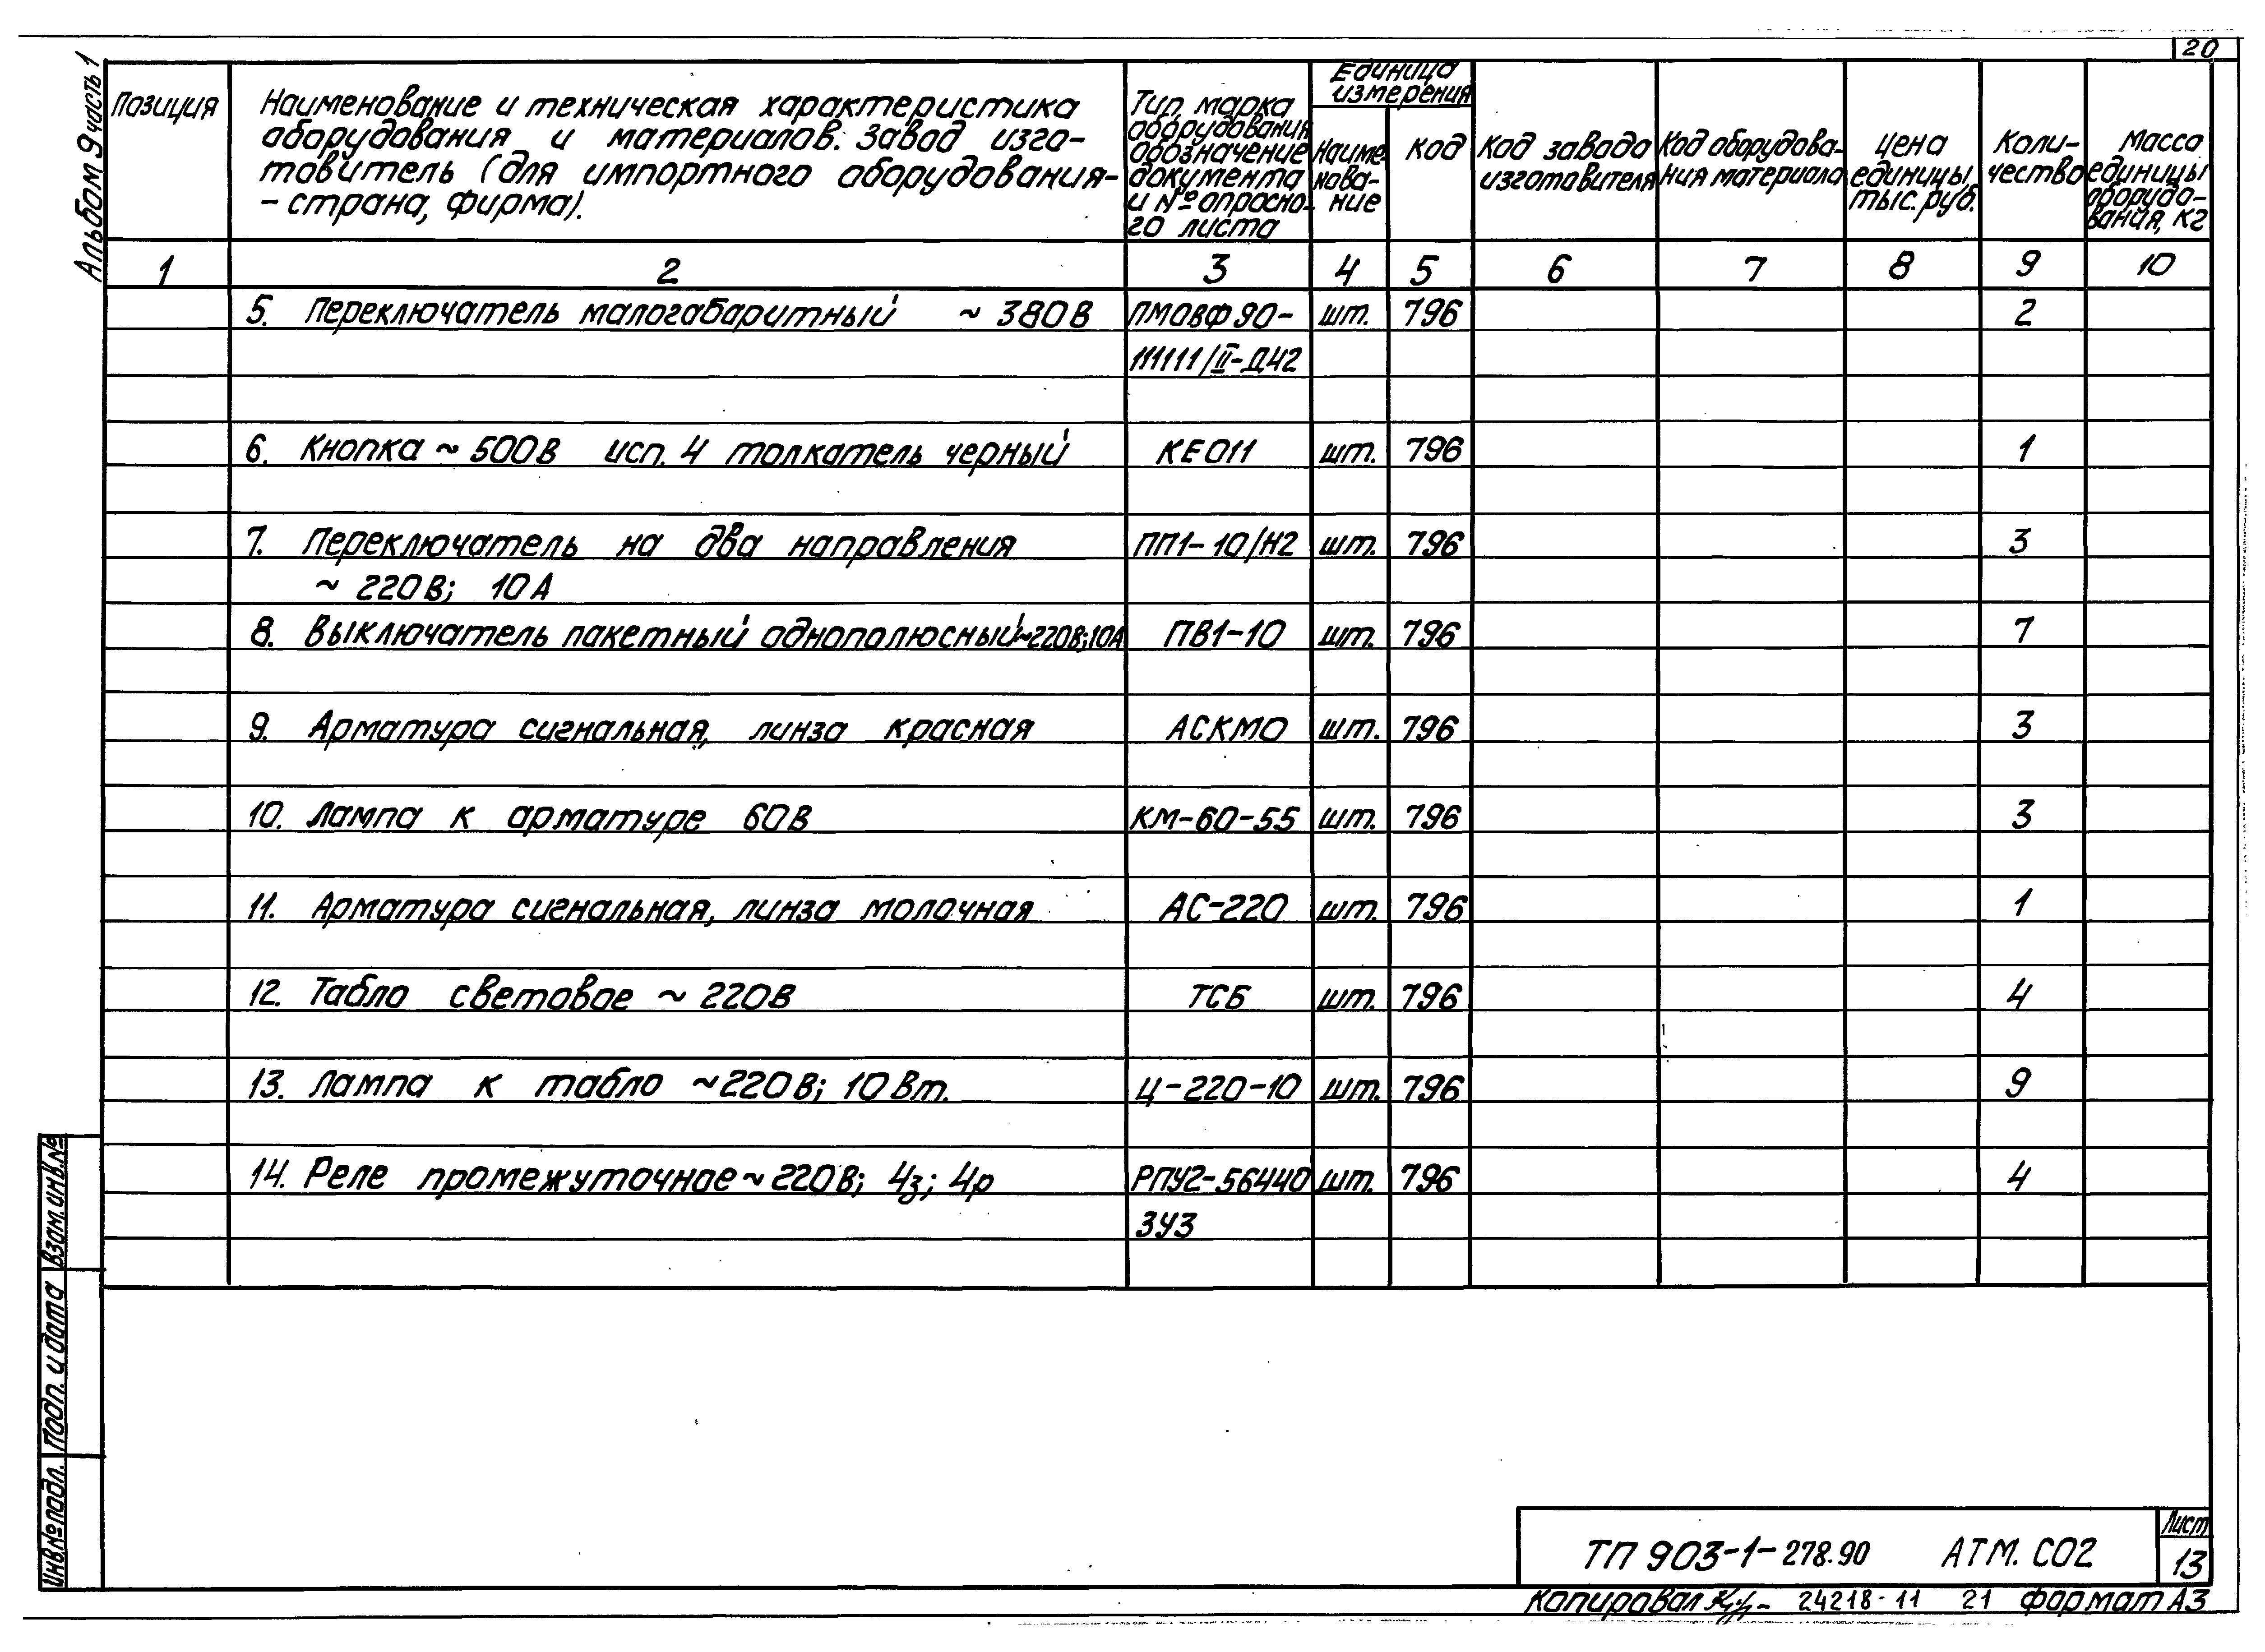 20
Альбом 9 часть 1
Позиция
Наименование и техническая характеристика
оборудования и материалов. Завод изго-
товитель (для импортного оборудования-
- страна, фирма).
Тип, марка
оборудования
обозначение
документа
и № опросно-
го листа
Единица
измерения
Наиме-
нова-
ние
Код
Код завода
изготовителя
Код оборудова-
ния материала
Цена
единицы,
тыс. руб.
Коли-
чество
Масса
единицы
оборудо-
вания, кг
1 2 3 4 5 6 7 8 9 10
5. Переключатель малогабаритный ~ 380В ПМОВФ90- шт. 796 2
111111/II-Д42
6. Кнопка ~ 500В исп. 4 толкатель черный КЕ011 шт. 796 1
7. Переключатель на два направления ПП1-10/Н2 шт. 796 3
~ 220В; 10А
8. Выключатель пакетный однополюсный ~220В; 10А ПВ1-10 шт. 796 7
9. Арматура сигнальная, линза красная АСКМО шт. 796 3
10. Лампа к арматуре 60В КМ-60-55 шт. 796 3
11. Арматура сигнальная, линза молочная АС-220 шт. 796 1
12. Табло световое ~ 220В ТСБ шт. 796 4
13. Лампа к табло ~220В; 10Вт. Ц-220-10 шт. 796 9
14. Реле промежуточное ~ 220В; 4з; 4р РПУ2-56440 шт. 796 4
3У3
Взам. инв. №
Подп. и дата
Инв. № подл.
ТП 903-1-278.90 АТМ. СО2
Лист
13
Копировал 24218-11 21 Формат А3